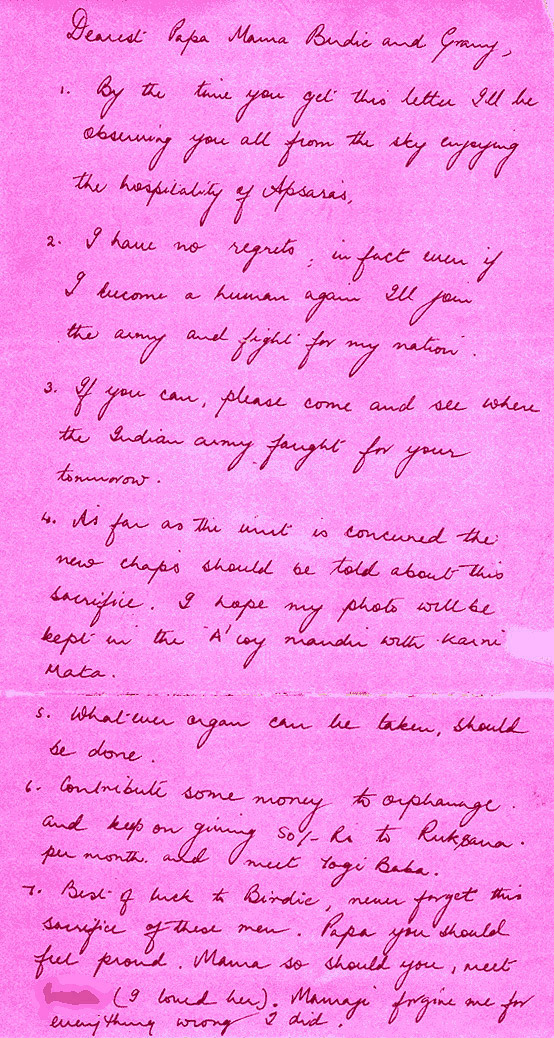 Dearest Papa Mama Birdie and Grany,
1. By the time you get this letter I'll be
observing you all from the sky enjoying
the hospitality of Apsaras.
2. I have no regrets, in fact even if
I become a human again I'll join
the army and fight for my nation.
3. If you can, please come and see where
the Indian army faught for your
tommorow.
4. As far as the unit is concerned the
new chaps should be told about this
sacrifice. I hope my photo will be
kept in the 'A' coy mandir with Karni
Mata.
5. Whatever organ can be taken, should
be done.
6. Contribute some money to orphanage.
and keep on giving 50/- Rs to Rukhsana.
per month. and meet Yogi Baba.
7. Best of luck to Birdie, never forget this
sacrifice of these men. Papa you should
feel proud. Mama so should you, meet
(I loved her). Mamaji forgive me for
everything wrong I did.